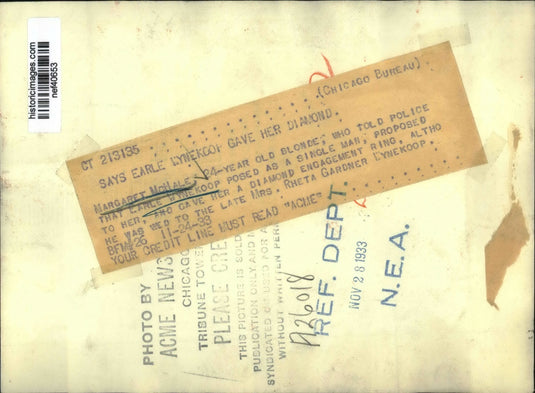 historicimages.com
nef40653
CT 213135 (CHICAGO BUREAU)
SAYS EARLE WYNEKOOP GAVE HER DIAMOND.
MARGARET MCHALE, 24-YEAR OLD BLONDE, WHO TOLD POLICE
THAT EARLE WYNEKOOP POSED AS A SINGLE MAN, PROPOSED
TO HER, AND GAVE HER A DIAMOND ENGAGEMENT RING, ALTHO
HE WAS WED TO THE LATE MRS. RHETA GARDNER WYNEKOOP.
BFM 26 11-24-33
YOUR CREDIT LINE MUST READ "ACME"
PHOTO BY
ACME NEWS
CHICAGO
TRIBUNE TOWER
PLEASE CRE
THIS PICTURE IS SOLD
PUBLICATION ONLY AND
SYNDICATED OR USED FOR A
WITHOUT WRITTEN PER
A26018
REF. DEPT.
NOV 28 1933
N.E.A.